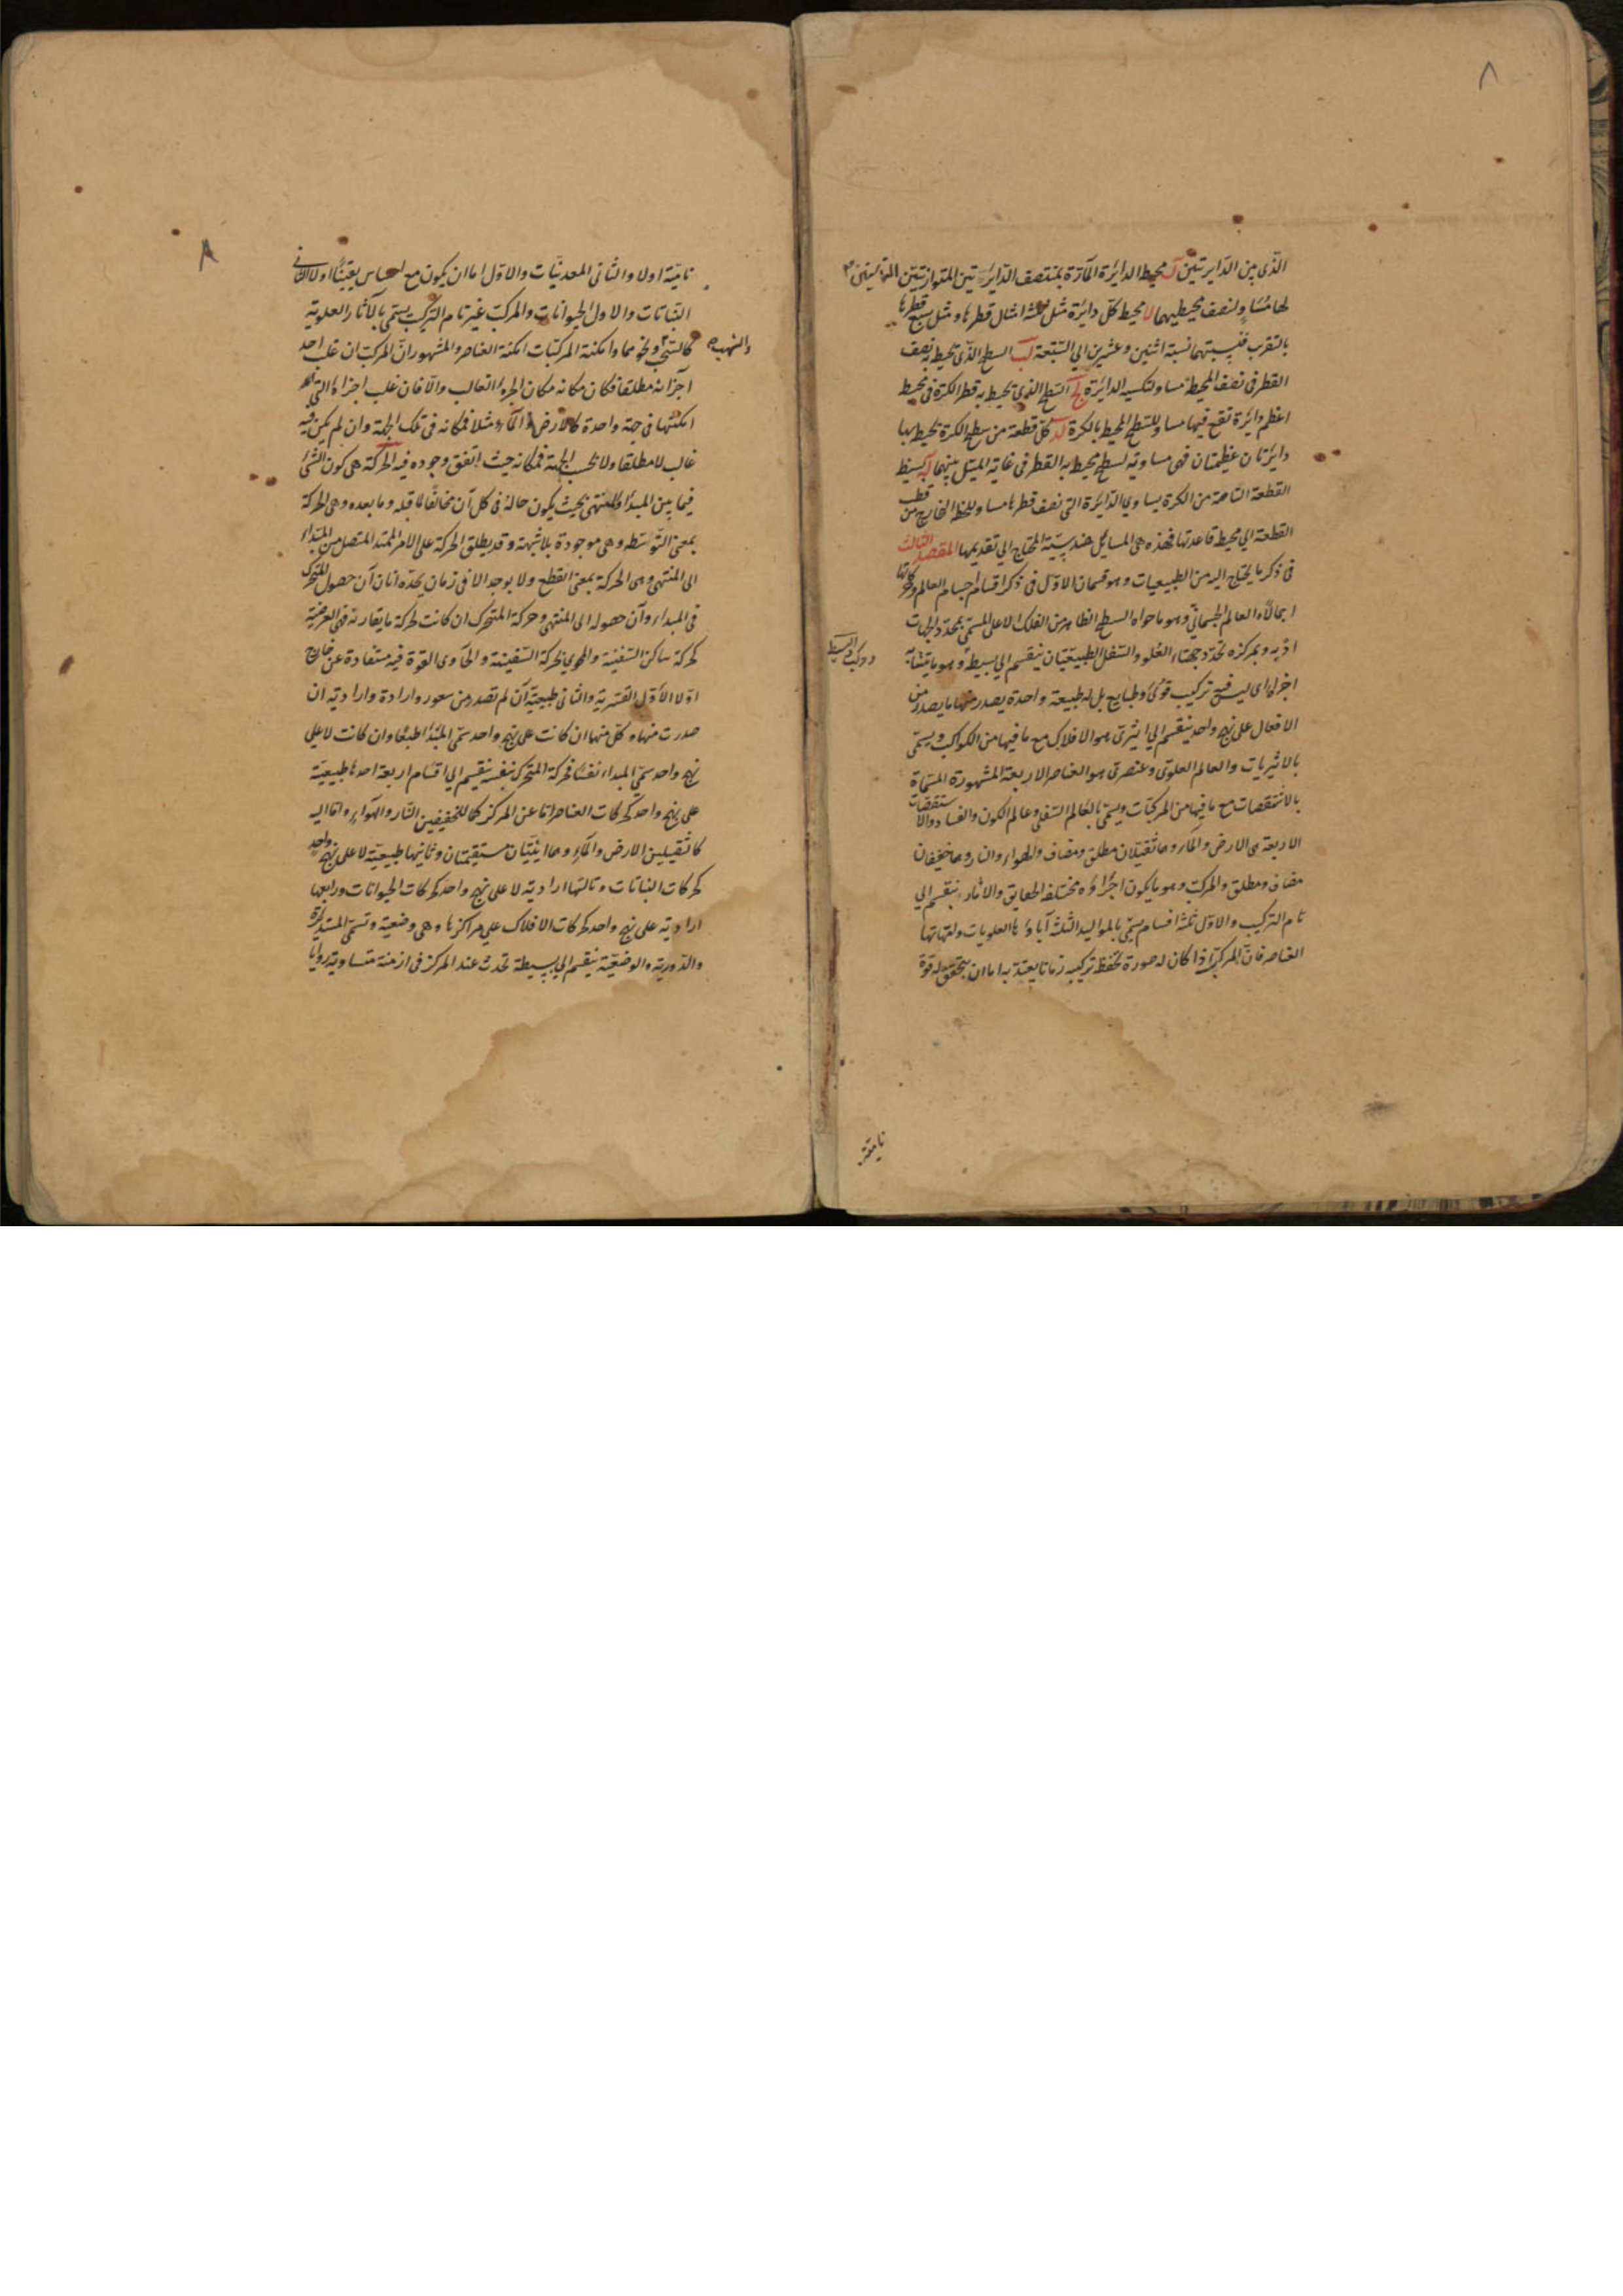 ٨
الذى بين الدايرتين ل محيط الدائرة المارة بمنتصف الدايرتين المتوازيتين
لها مساو لنصف محيطيهما لا محيط كل دائرة مثل ثلثة امثال قطرها ومثل سبع قطرها
بالتقرب فنسبتهما نسبة اثنين وعشرين الي السبعة لب السطح الذى يحيط به نصف
القطر فى نصف المحيط مساو لتكسير الدائرة لج السطح الذى يحيط به قطر الكرة فى محيط
اعظم دائرة تقع فيها مساو للسطح المحيط بالكرة لد كل قطعة من سطح الكرة يحيط بها
دائرتان عظيمتان فهى مساوية لسطح يحيط به القطر فى غاية الميل بينهما له بسيط
القطعة التامة من الكرة يساوي الدائرة التى نصف قطرها مساو للخط الخارج من قطب
القطعة الي محيط قاعدتها فهذه هى المسايل هندسيّة المحتاج الي تقديمها المقصد الثالث
فى ذكر ما يحتاج اليه من الطبيعيات وهو قسمان الاول فى ذكر اقسام اجسام العالم وحركاتها
اجمالا العالم الجسمانى وهو ما حواه السطح الظاهر من الفلك الاعلى المسمى بمحدد الجهات
اذ به وبمركزه تحدد جهتاء العلو والسفل الطبيعيتان ينقسم الي بسيط وهو ما يتشابه
ومركب والبسيط
اجزاء اى ليس فيه تركيب قوى وطبايع بل له طبيعة واحدة يصدر منها ما يصدر من
الافعال على نهج واحد ينقسم الي اثيرى هو الافلاك مع ما فيها من الكواكب ويسمى
بالاثيريات والعالم العلوى وعنصرى هو العناصر الاربعة المشهورة المسماة
بالاستقصات مع ما فيها من المركبات ويسمى بالعالم السفلى وعالم الكون والفساد والاستقصات
الاربعة هى الارض والماء وهما ثقيلان مطلق ومضاف والهواء والنار وهما خفيفان
مضاف ومطلق والمركب وهو ما يكون اجزاؤه مختلفة الحقايق والاثار ينقسم الي
تام التركيب والاول ثلثة اقسام يسمى بالمواليد الثلثة آباؤها العلويات وامهاتها
العناصر فان المركب اذا كان له صورة تحفظ تركيبه زمانا يعتد به اما ان يتحقق له قوة
نامية
٨
نامية اولا والثانى المعدنيات والاول اما ان يكون مع احساس يقينا اولا الثانى
النباتات والاول الحيوانات والمركب غير تام التركيب يسمى بالآثار العلوية
والشهب
كالسحب ونحوهما وامكنة المركبات امكنة العناصر والمشهور ان المركب ان غلب احد
اجزائه مطلقا فكان مكانه مكان الجزء الغالب والا فان غلب اجزاء التى
امكنتها فى جهة واحدة كالارض والماء مثلا فمكانه فى تلك الجهة وان لم يكن فيه
غالب لا مطلقا ولا بحسب الجهة فمكانه حيث اتفق وجوده فيه الحركة هى كون الشئ
فيما بين المبدأ والمنتهى بحيث يكون حاله فى كل آن مخالفا لما قبله وما بعده وهى الحركة
بمعنى التوسط وهى موجودة بلا شبهة وقد يطلق الحركة على الامر الممتد المتصل من المبداء
الى المنتهى وهى الحركة بمعنى القطع ولا يوجد الا فى زمان يحده انان آن حصول المتحرك
فى المبداء وآن حصوله الى المنتهى وحركة المتحرك ان كانت لحركة ما يقارنه فهى العرضية
كحركة ساكن السفينة والمحوي بحركة السفينة والحاوى القوة فيه مستفادة عن خارج
اولا الاول القسرية والثانى طبيعية ان لم تصدر من شعور وارادة وارادية ان
صدرت منها وكل منها ان كانت على نهج واحد سمى المبدأ طبعا وان كانت لا على
نهج واحد سمى المبداء نفسا فحركة المتحرك بنفسه ينقسم الي اقسام اربعة احدها طبيعية
على نهج واحد كحركات العناصر اما عن المركز كما للخفيفين النار والهواء واما اليه
كما لثقيلين الارض والماء وهما اينيتان مستقيمتان وثانيها طبيعية لا على نهج واحد
كحركات النباتات وثالثها ارادية لا على نهج واحد كحركات الحيوانات ورابعها
ارادية على نهج واحد كحركات الافلاك على مراكزها وهى وضعية وتسمى المستديرة
والدورية والوضعية ينقسم الي بسيطة تحدث عند المركز فى ازمنة متساوية زوايا